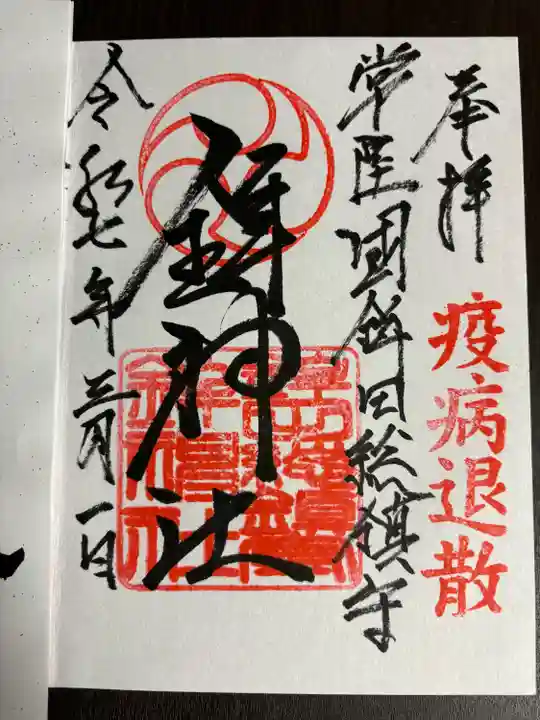 奉拝
疫病退散
常陸国鉾田総鎮守
鉾神社
令和七年三月一日